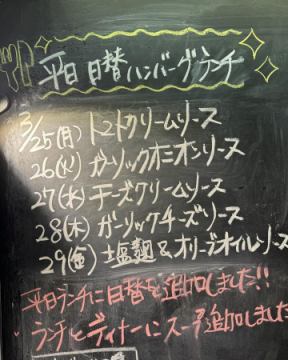 平日 日替ハンバーグランチ
3/25(月) トマトクリームソース
26(火) ガーリックオニオンソース
27(水) チーズクリームソース
28(木) ガーリックチーズソース
29(金) 塩麹&オリーブオイルソース
平日ランチに日替を追加しました!!
ランチとディナーにスープ追加しました